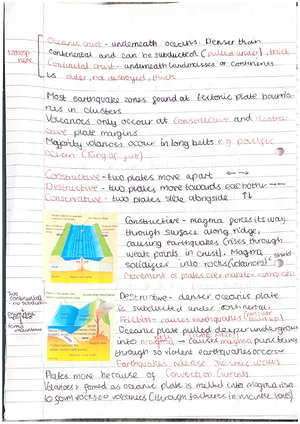 Oceanic crust - underneath oceans. Denser than
continental and can be subducted (pulled under), thick
Continental crust - underneath landmasses or continents
is older, not destroyed, thick
Most earthquake zones found at tectonic plate bounda-
ries in clusters
Volcanoes only occur at constructive and destru-
ctive plate margins
Majority volcanoes occur in long belts e.g. pacific
ocean (Ring of fire)
Constructive - two plates move apart ← →
Destructive - two plates move towards each other → ←
Conservative - two plates slide alongside ↑↓
Constructive - magma forces its way
through surface along ridge,
causing earthquakes (rises through
weak points in crust). Magma
solidifies into rocks (volcanoes) shield
Movement of plates over mantle - earthquakes
Destructive - denser oceanic plate
is subducted under continental.
Friction - causes earthquakes
Oceanic plate pulled deeper underground
into magma → causes magma
through so violent earthquakes occur
Earthquakes release seismic waves
Plates move because of convection currents
Volcanoes formed as oceanic plate is melted into magma, rises
to form volcanoes (through fractures in mantle
Two continental
- no subduction
forms
mountains